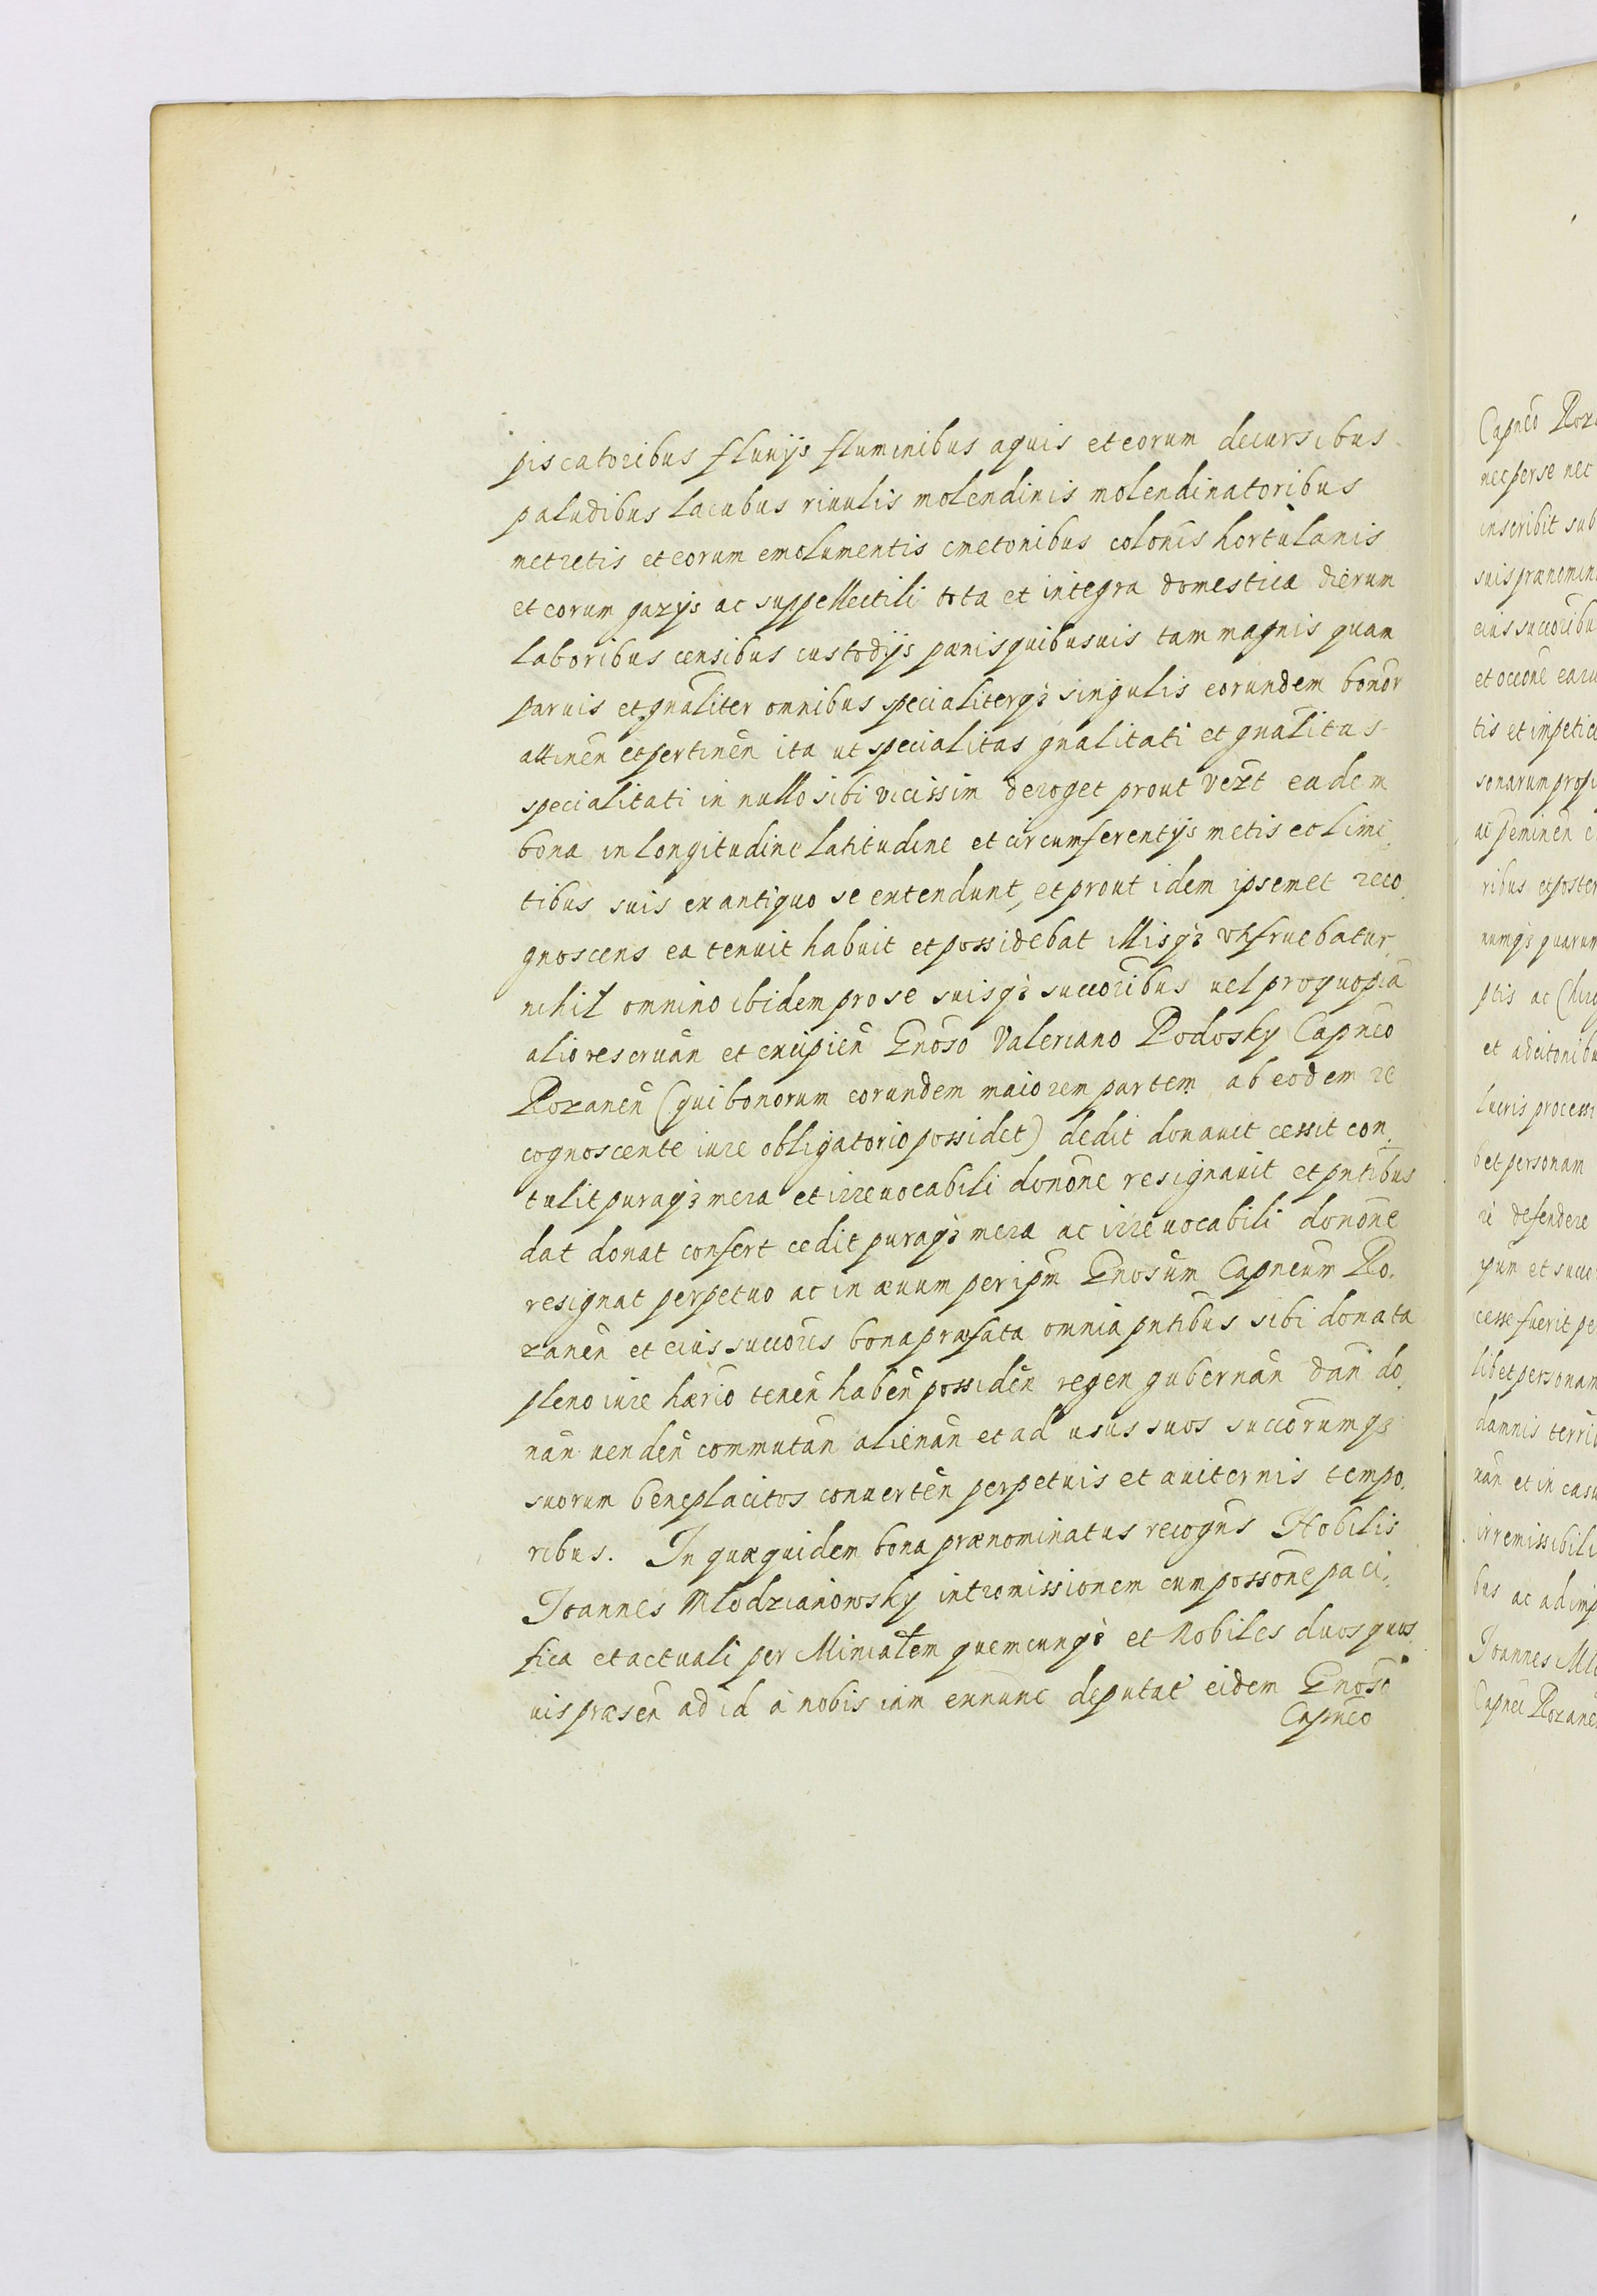 piscatoribus fluuijs fluminibus aquis et eorum decursibus
paludibus lacubus riuulis molendinis molendinatoribus
metretis et eorum emolumentis cmetonibus colonis hortulanis
et eorum gazys ac suppellectili tota et integra domestica dierum
laboribus censibus custodijs pænis quibusuis tam magnis quam
paruis et gnaliter omnibus specialiterq3 singulis eorundem bonor
attinen et pertinen ita ut specialitas gnalitati et gnalitas
specialitati in nullo sibi vicissim deroget prout eadem
bona in longitudine latitudine et circumferentijs metis et limi,
tibus suis ex antiquo se extendunt, et prout idem ipsemet reco,
gnoscens ea tenuit habuit et possidebat illisq3 utifruebatur,
nihil omnino ibidem pro se suisq3 succoribus uel pro quopiã
alio reseruan et excipien Gnoso Valeriano Podosky Capneo
Rozanen (qui bonorum eorundem maiorem partem ab eodem re
cognoscente iure obligatorio possidet) dedit donauit cessit con,
tulit puraq3 mera et irreuocabili donone resignauit et pntibus
dat donat confert cedit puraq3 mera ac irreuocabili donone
resignat perpetuo ac in æuum per ipm Gnosum Capneum Ro,
zanen et eius succores bona præfata omnia pntibus sibi donata
pleno iure hærio tenen haben possiden regen gubernan dan do,
nan uenden commutan alienan et ad usus suos succorumq3
suorum beneplacitos conuerten perpetuis et auiternis tempo,
ribus. In quæquidem bona prænominatus recogns Nobilis
Joannes Mlodzianowsky intromissionem cum possone paci,
fica et actuali per Minialem quemcunq3 et Nobiles duos quos
uis præsen ad id à nobis iam exnunc deputat eidem Gnoso
Capneo
Capneo
nec per se nec
inscribit sub
suis prænomin
eius succoribu
et occone
tis et impetic
sonarum
ribus et poster
numq3 quarum
ptis ac
lucris processi
bet personam
re defendere
cesse fuerit pe
libet personam
damnis
nan et in casu
irremissibili
bus ac ad imp
Joannes
Capnei Rozane